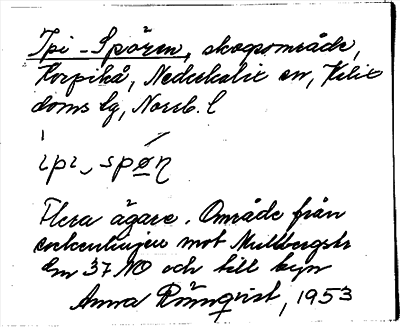 Ipi-Spören, skogsområde,
Korpikå, Nederkalix sn, Kalix
doms lg, Norrb. l
ipi, spøn
Flera ägare. Område från
sockenlinjen mot Mullbergstr
Em 37 NO och till byn
Anna Rönnqvist, 1953